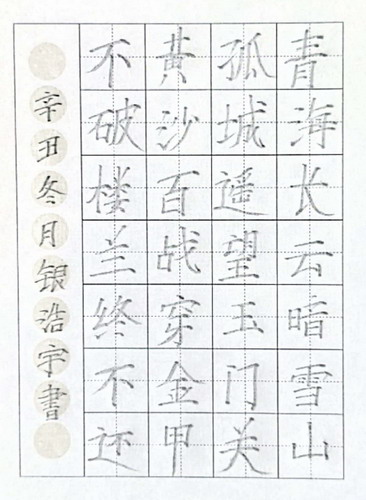 青海长云暗雪山
孤城遥望玉门关
黄沙百战穿金甲
不破楼兰终不还
辛丑冬月银浩宇書